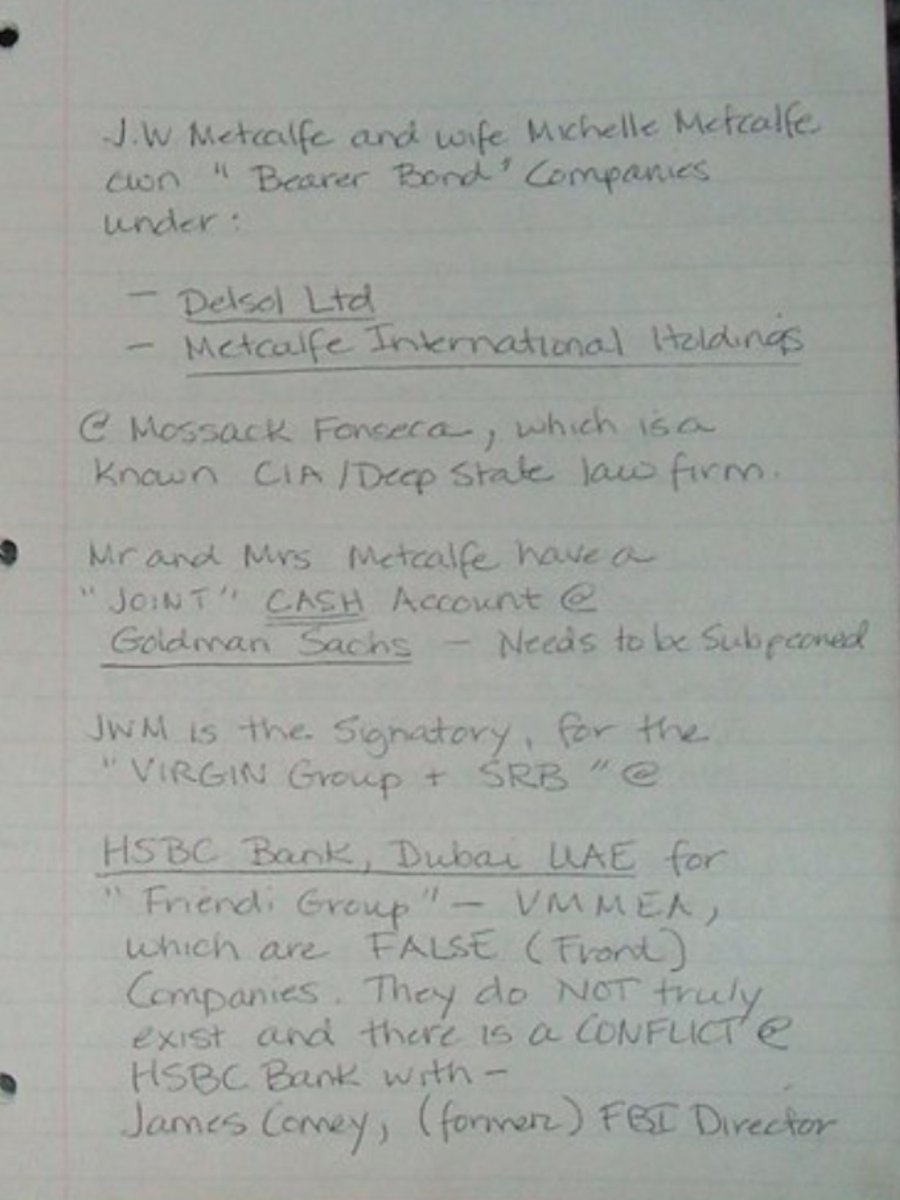 J.W Metcalfe and wife Michelle Metcalfe
own "Bearer Bond" Companies
under:
- Delsol Ltd
- Metcalfe International Holdings
@ Mossack Fonseca, which is a
known CIA/Deep State law firm.
Mr and Mrs Metcalfe have a
"JOINT" CASH Account @
Goldman Sachs - Needs to be Subpeoned
JWM is the Signatory, for the
"VIRGIN Group + SRB" @
HSBC Bank, Dubai UAE for
"Friendi Group" - VMMEA,
which are FALSE (Front)
Companies. They do NOT truly
exist and there is a CONFLICT @
HSBC Bank with -
James Comey, (former) FBI Director